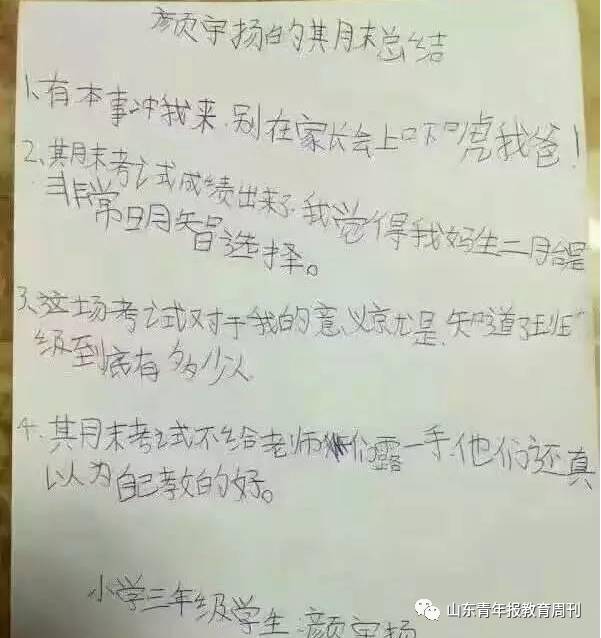 颜宇扬的期末总结
1、有本事冲我来,别在家长会上吓唬我爸!
2、期末考试成绩出来了,我觉得我妈生二胎是
非常明智选择。
3、这场考试对于我的意义京尤是,知道了班
级到底有多少人
4、期末考试不给老师们露一手,他们还真
以为自己教的好。
小学三年级学生:颜宇扬
山东青年报教育周刊